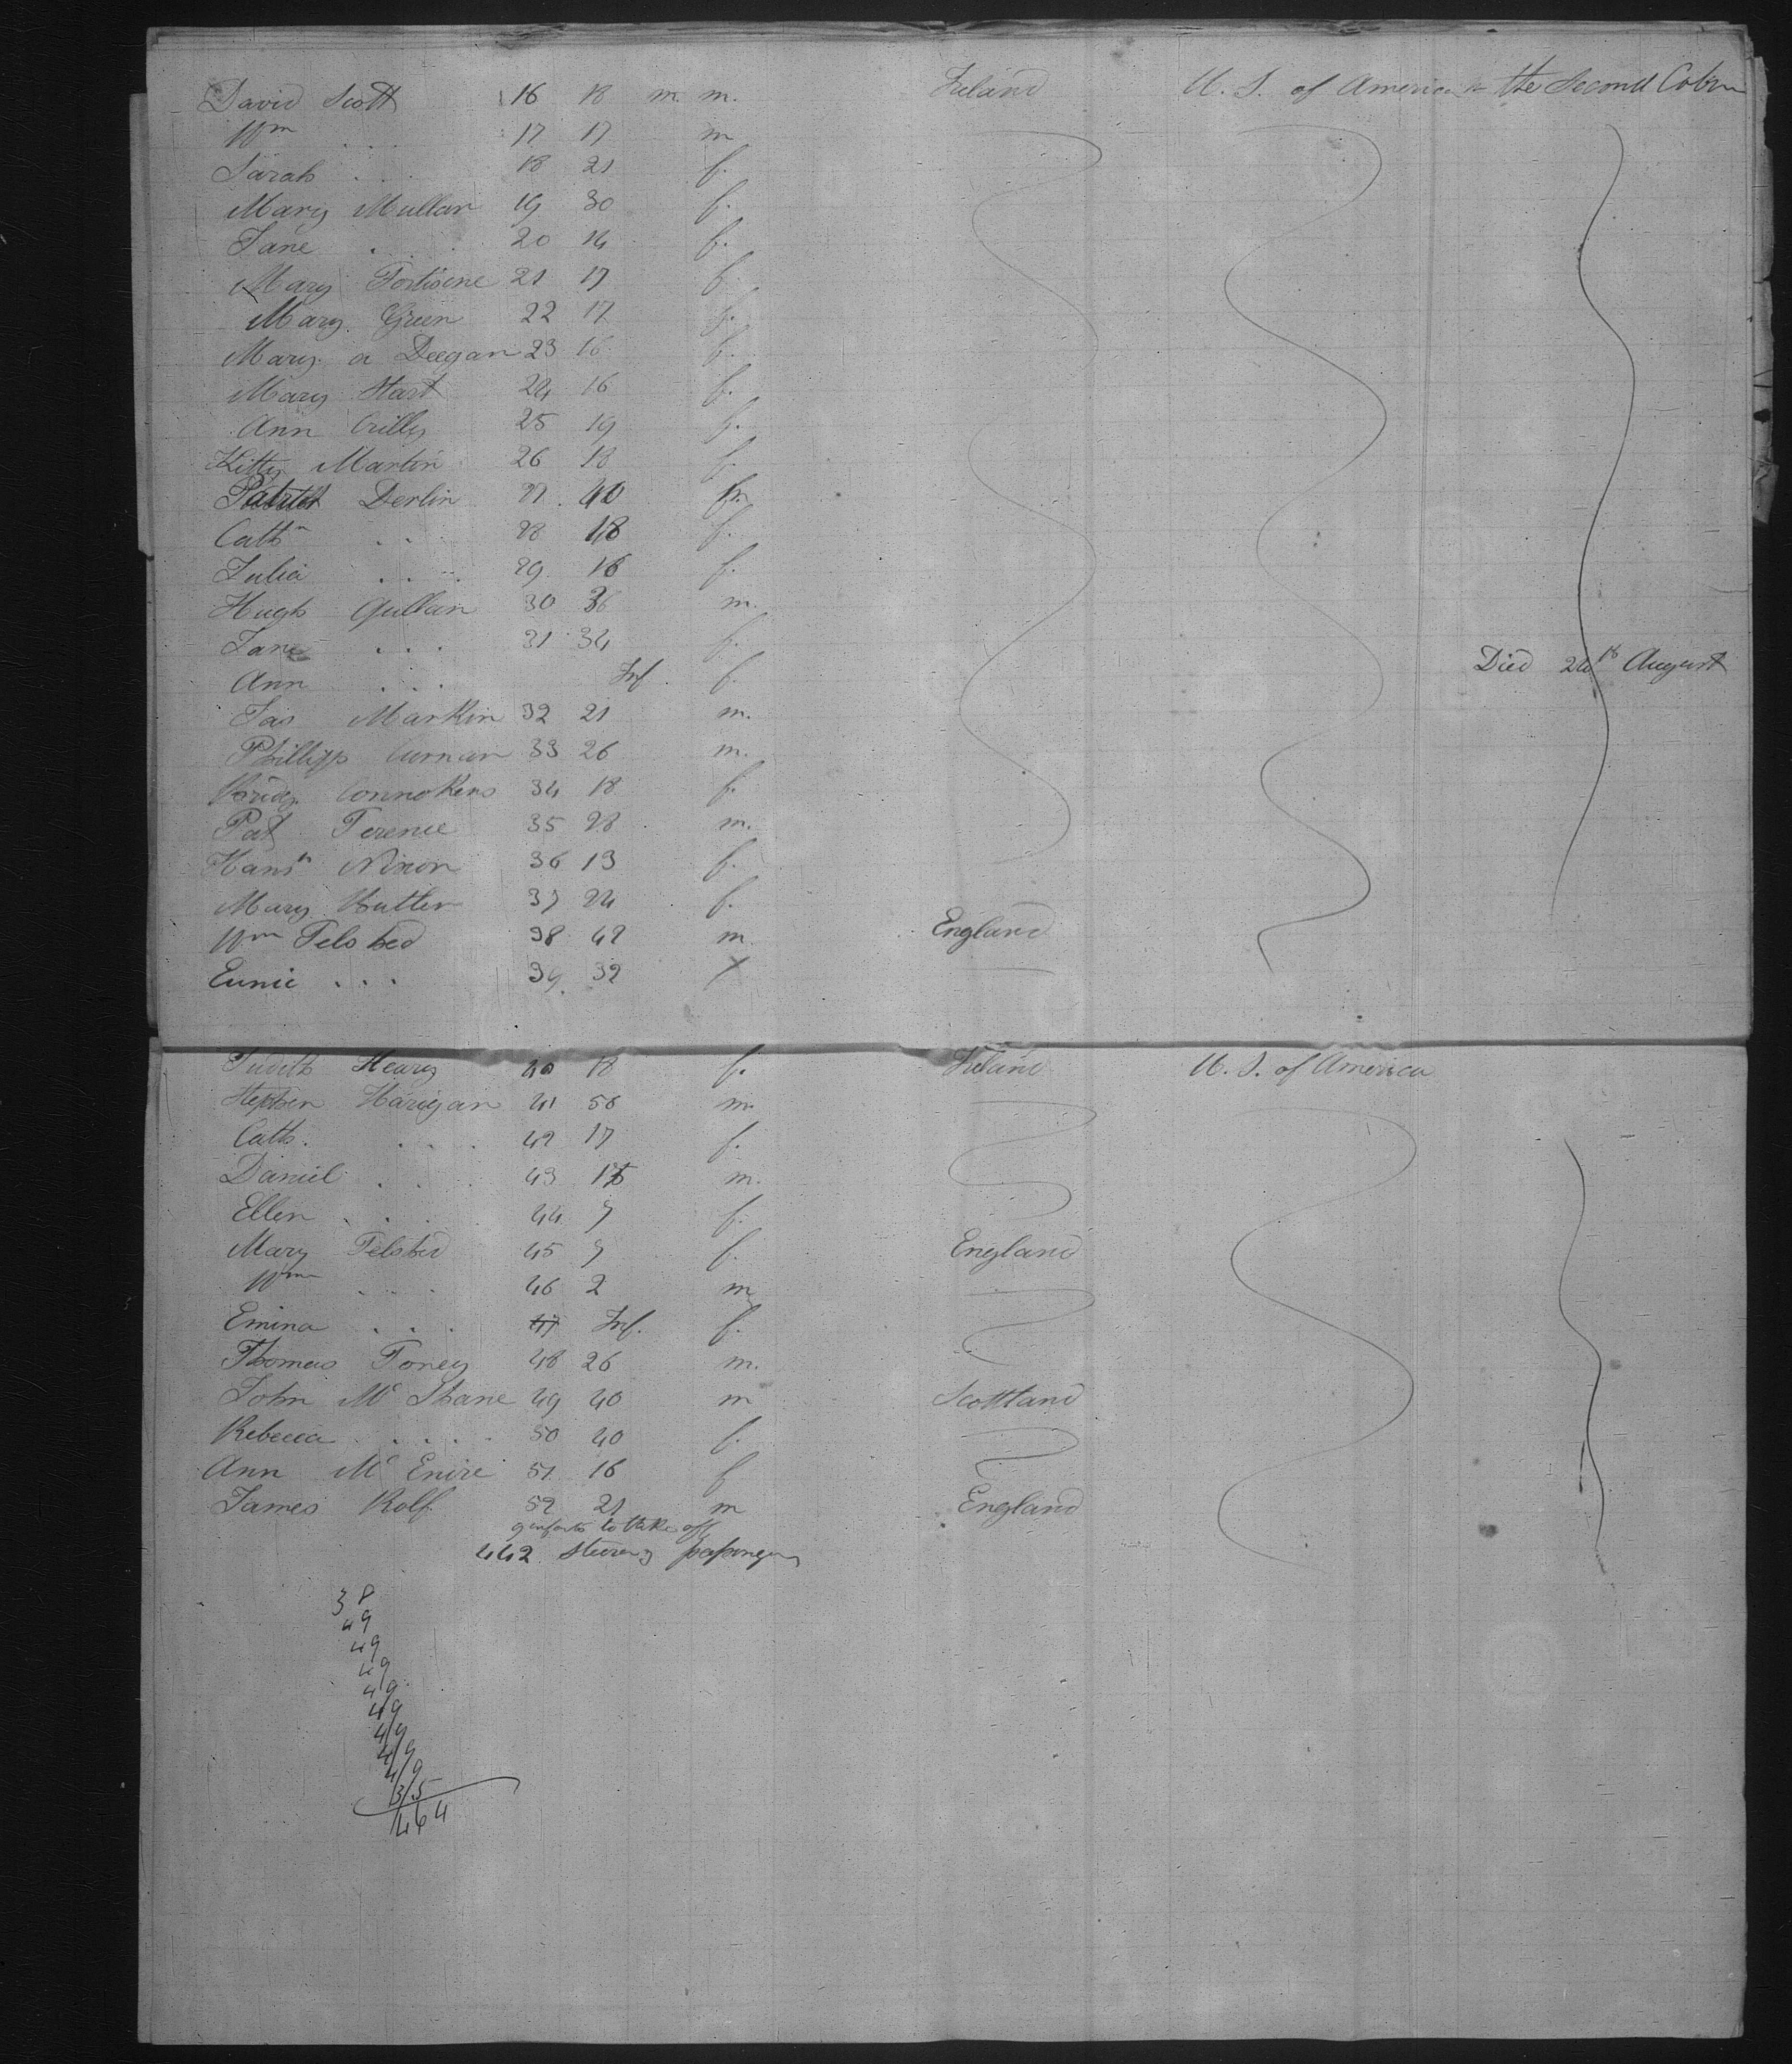 David Scott 16 18 m. m. Ireland U. S. of America In the Second Cabin
Wm . . . 17 17 m
Sarah . . . 18 21 f.
Mary Mullan 19 30 f.
Jane . . . 20 14 f.
Mary 21 17 f.
Mary Green 22 17 f.
Mary a Deegan 23 16 f.
Mary Hart 24 16 f.
Ann Crilly 25 19 f.
Kitty Martin 26 18 f.
Patrick Derlin 27 40 m.
Cath . . . 28 18 f.
Julia . . . 29 16 f.
Hugh Gullan 30 36 m.
Jane . . . 31 34 f.
Ann . . . Inf. f. Died 24th August
Jas Markin 32 21 m.
Phillips Curnan 33 26 m.
Bridg. 34 18 f.
Pat Terence 35 28 m.
Hanh Nixon 36 13 f.
Mary Butler 37 24 f.
Wm Felsted 38 42 m England
Eunic . . . 39 32 f
Judith Heary 40 18 f. Ireland U. S. of America
Stephen Harigan 41 50 m.
Cath. . . . 42 17 f.
Daniel . . . 43 m.
Ellen . . . 44 7 f.
Mary Felsted 45 7 f. England
Wm . . . 46 2 m
Emina . . . 47 Inf. f.
Thomas Toney 48 26 m.
John Mc Shane 49 40 m Scottland
Rebecca . . . . . 50 40 f.
Ann Mc Enire 51 16 f
James Rolf 52 21 m England
9 infants to take off
442 Steerag passengers
38
49
49
49
49
49
49
49
49
35
464